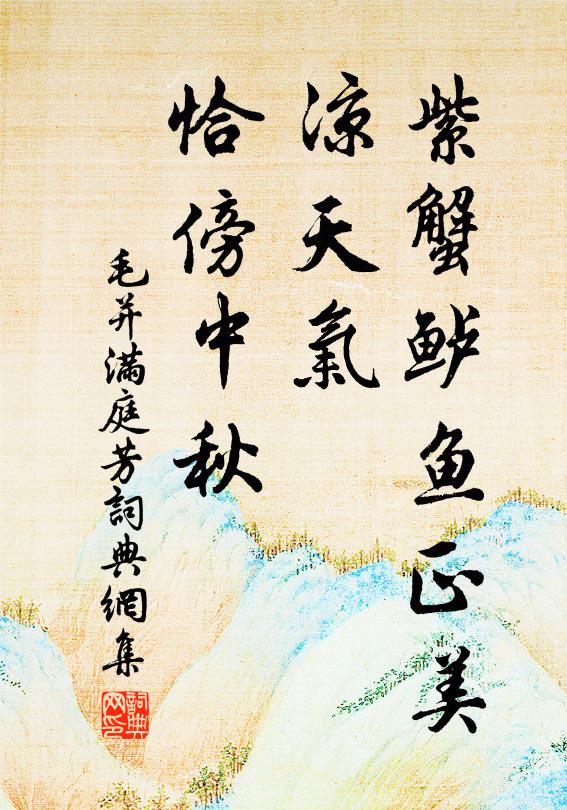 紫蟹鲈鱼正美
凉天氣
恰傍中秋
毛并滿庭芳詞典網集
詞典
网印